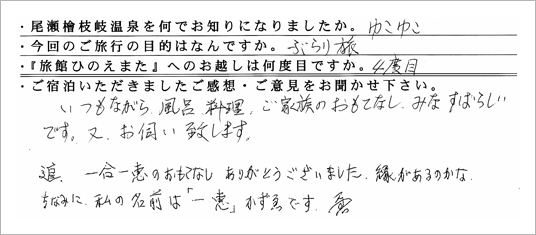 ・尾瀬檜枝岐温泉を何でお知りになりましたか。 ゆこゆこ
・今回のご旅行の目的はなんですか。 ぶらり旅
・『旅館ひのえまた』へのお越しは何度目ですか。 4度目
・ご宿泊いただきましたご感想・ご意見をお聞かせ下さい。
いつもながら、風呂、料理、ご家族のおもてなし、みなすばらしい
です。又、お伺い致します。
追、一合一恵のおもてなし ありがとうございました。縁があるのかな、
ちなみに、私の名前は「一恵」かずゑです。